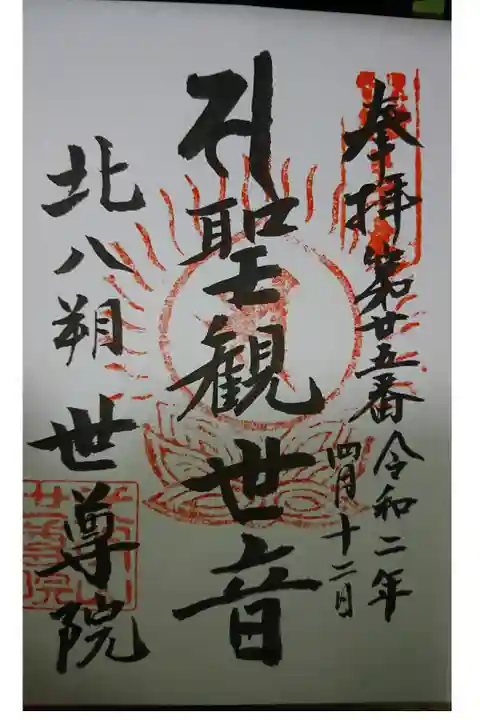 奉拝第廿五番
令和二年
四月十二日
聖観世音
北八朔
世尊院